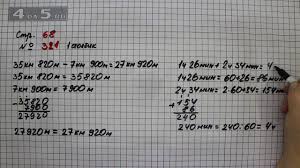 4DS
Стр. 68
№ 321 1 столбик
35км 820м - 7км 900м = 27км 920м
35км 820м = 35820м
7км 900м = 7900м
- 35820
7900
27920
27920м = 27км 920м
1ч26мин + 2ч 34мин = 4
1ч26мин = 60+26 = 86мин
2ч 34мин = 2·60+34 = 154мин
+ 154
86
240
240мин = 240:60 = 4ч